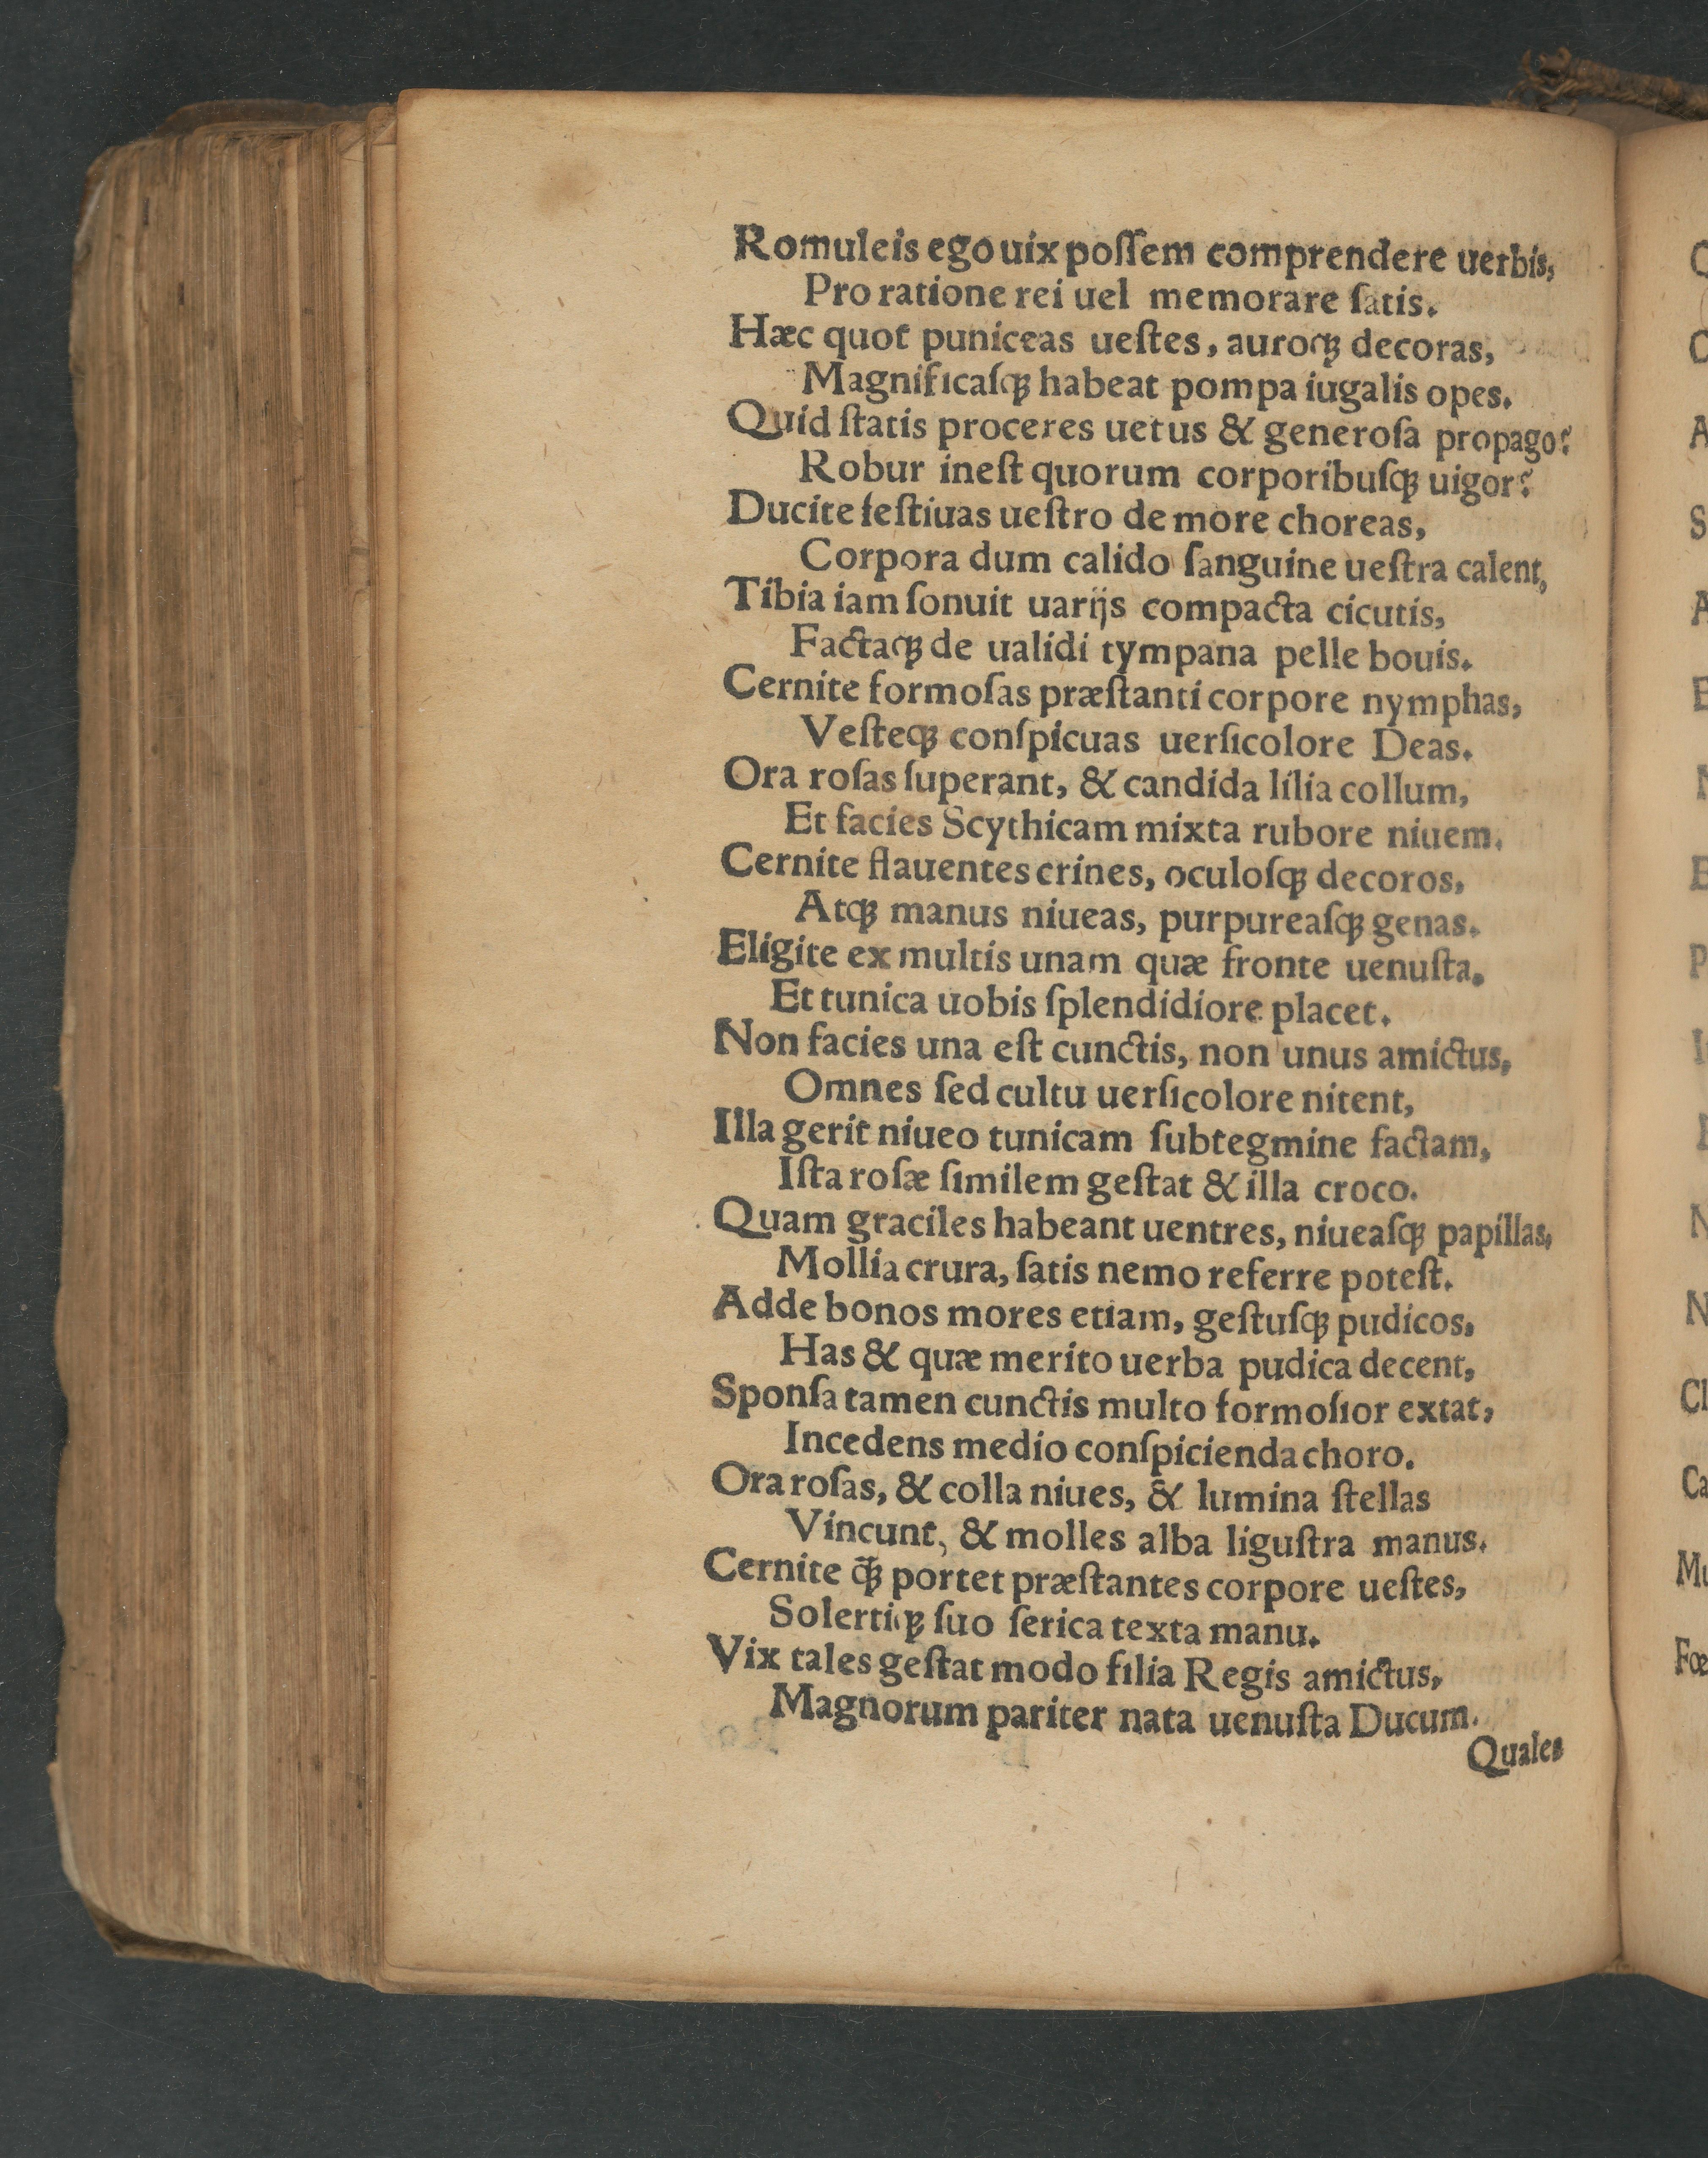 Romuleis ego uix poſſem comprendere uerbis,
Pro ratione rei uel memorare ſatis.
Hæc quot puniceas ueſtes, auroqꝫ decoras,
Magnificaſqꝫ habeat pompa iugalis opes.
Quid ſtatis proceres uetus & generoſa propago?
Robur ineſt quorum corporibuſqꝫ uigor?
Ducite feſtiuas ueſtro de more choreas,
Corpora dum calido ſanguine ueſtra calent,
Tibia iam ſonuit uarijs compacta cicutis,
Factaqꝫ de ualidi tympana pelle bouis.
Cernite formoſas præſtanti corpore nymphas,
Veſteqꝫ conſpicuas uerſicolore Deas.
Ora roſas ſuperant, & candida lilia collum,
Et facies Scythicam mixta rubore niuem.
Cernite flauentes crines, oculoſqꝫ decoros,
Atqꝫ manus niueas, purpureaſqꝫ genas.
Eligite ex multis unam quæ fronte uenuſta.
Et tunica uobis ſplendidiore placet.
Non facies una eſt cunctis, non unus amictus,
Omnes ſed cultu uerſicolore nitent,
Illa gerit niueo tunicam ſubtegmine factam,
Iſta roſæ ſimilem geſtat & illa croco.
Quam graciles habeant uentres, niueaſqꝫ papillas,
Mollia crura, ſatis nemo referre poteſt.
Adde bonos mores etiam, geſtuſqꝫ pudicos,
Has & quæ merito uerba pudica decent,
Sponſa tamen cunctis multo formoſior extat,
Incedens medio conſpicienda choro.
Ora roſas, & colla niues, & lumina ſtellas
Vincunt, & molles alba liguſtra manus.
Cernite q̃ꝫ portet præſtantes corpore ueſtes,
Solertiqꝫ ſuo ſerica texta manu.
Vix tales geſtat modo filia Regis amictus,
Magnorum pariter nata uenuſta Ducum.
Quales